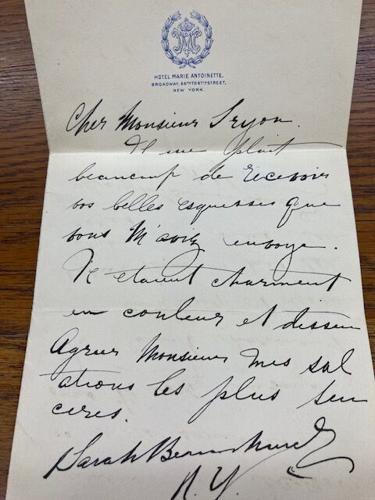 HOTEL MARIE ANTOINETTE,
BROADWAY, 66TH & 67TH STREET,
NEW YORK.
Cher Monsieur Sryon.
Il me plait
beaucoup de recevoir
vos belles esquesses que
vous M'aviez envoye.
Il etaient charment
en couleur et dessin
Agreer Monsieur mes sal
ations les plus sin
ceres.
Sarah Bernhardt
N. Y.